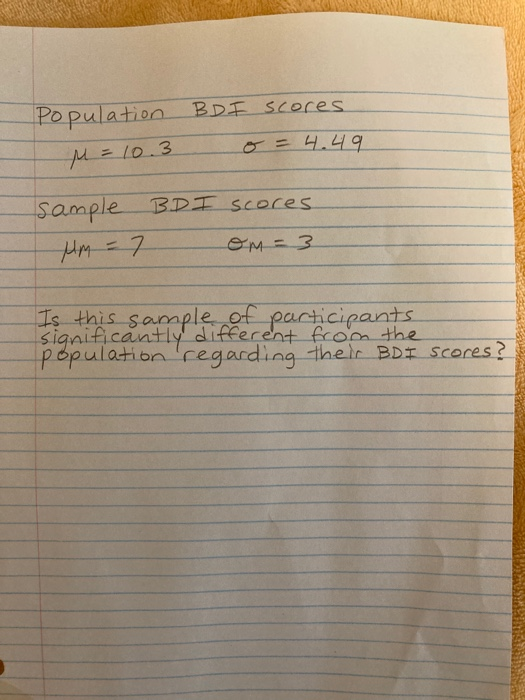 Population BDI scores
μ = 10.3 σ = 4.49
Sample BDI scores
μM = 7 σM = 3
Is this sample of participants
significantly different from the
population regarding their BDI scores?